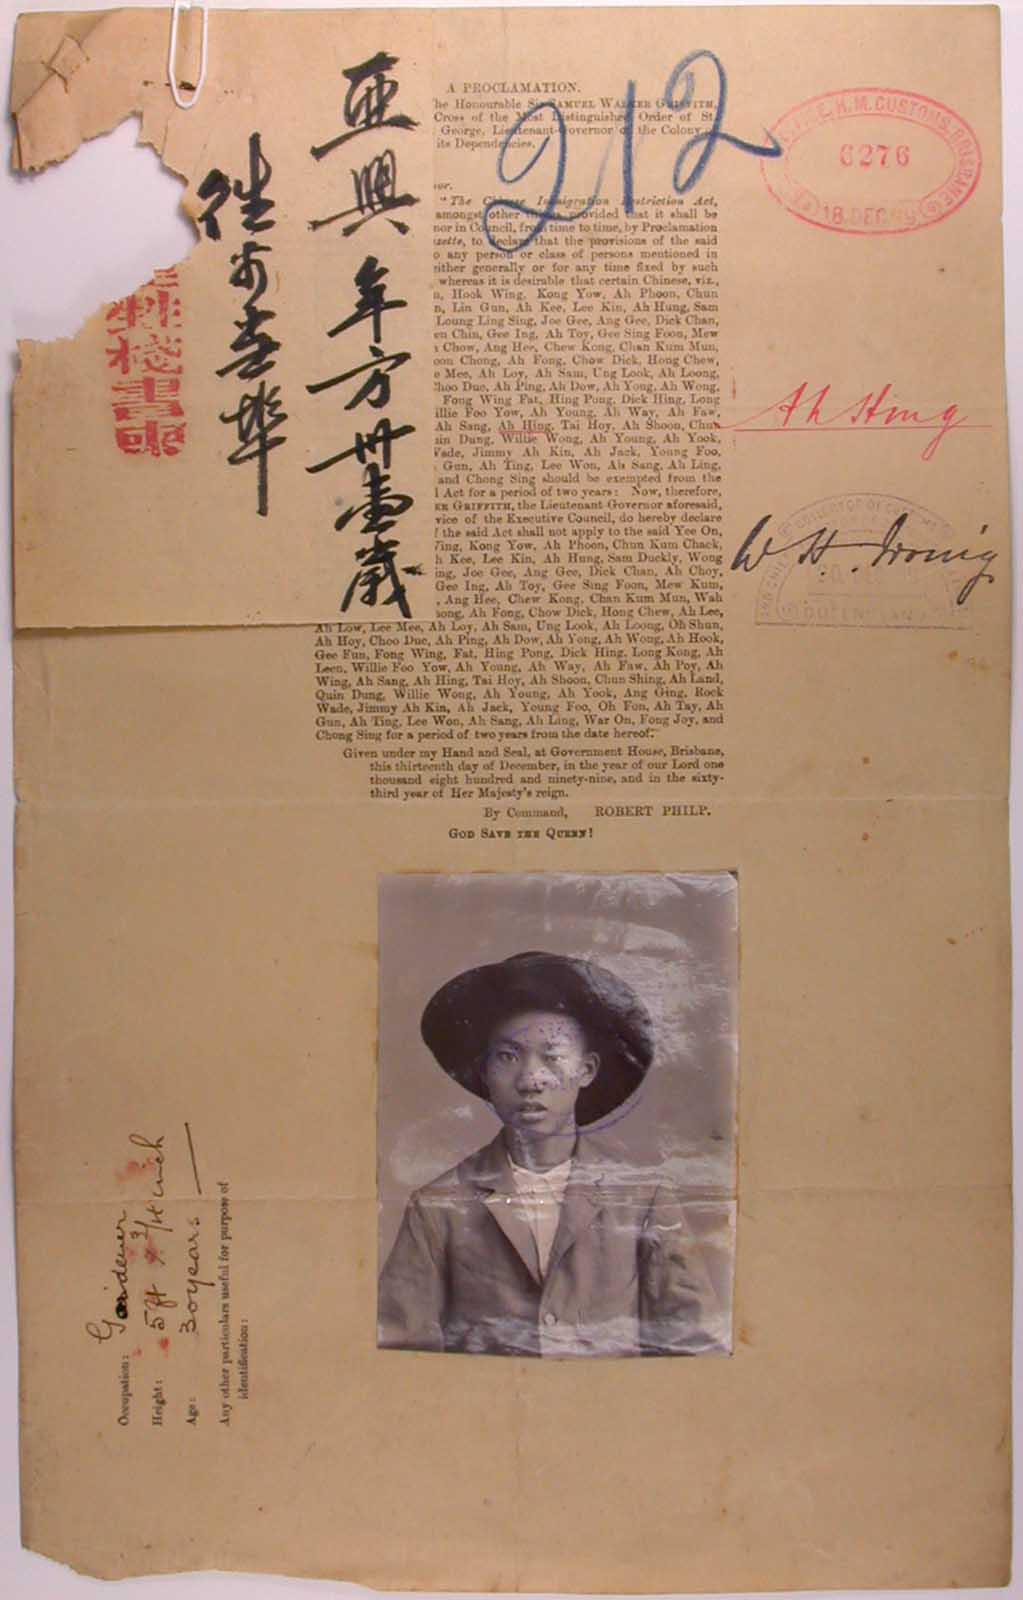 亜興年方卅壹歲
埠
212
A PROCLAMATION.
Honourable Sir SAMUEL WALKER GRIFFITH,
Cross of the Most Distinguished Order of St.
George, Lieutenant-Governor of the Colony of
its Dependencies.
"The Chinese Immigration Restriction Act,
amongst other things provided that it shall be
in Council, from time to time, by Proclamation
to declare that the provisions of the said
any person or class of persons mentioned in
either generally or for any time fixed by such
whereas it is desirable that certain Chinese, viz.,
Hook Wing, Kong Yow, Ah Phoon, Chun
Lin Gun, Ah Kee, Lee Kin, Ah Hung, Sam
Loung Ling Sing, Joe Gee, Ang Gee, Dick Chan,
Chin, Gee Ing, Ah Toy, Gee Sing Foon, Mew
Chow, Ang Hee, Chew Kong, Chan Kum Mun,
Chong, Ah Fong, Chow Dick, Hong Chew,
Mee, Ah Loy, Ah Sam, Ung Look, Ah Loong,
Choo Duc, Ah Ping, Ah Dow, Ah Yong, Ah Wong,
Fong Wing Fat, Hing Pong, Dick Hing, Long
Foo Yow, Ah Young, Ah Way, Ah Faw,
Ah Sang, Ah Hing, Tai Hoy, Ah Shoon, Chun
Dung, Willie Wong, Ah Young, Ah Yook,
Wade, Jimmy Ah Kin, Ah Jack, Young Foo,
Gun, Ah Ting, Lee Won, Ah Sang, Ah Ling,
and Chong Sing should be exempted from the
Act for a period of two years: Now, therefore,
GRIFFITH, the Lieutenant-Governor aforesaid,
of the Executive Council, do hereby declare
the said Act shall not apply to the said Yee On,
Kong Yow, Ah Phoon, Chun Kum Chack,
Kee, Lee Kin, Ah Hung, Sam Duckly, Wong
Joe Gee, Ang Gee, Dick Chan, Ah Choy,
Gee Ing, Ah Toy, Gee Sing Foon, Mew Kum,
Ang Hee, Chew Kong, Chan Kum Mun, Wah
Ah Fong, Chow Dick, Hong Chew, Ah Lee,
Ah Low, Lee Mee, Ah Loy, Ah Sam, Ung Look, Ah Loong, Oh Shun,
Ah Hoy, Choo Duc, Ah Ping, Ah Dow, Ah Yong, Ah Wong, Ah Hook,
Gee Fun, Fong Wing, Fat, Hing Pong, Dick Hing, Long Kong, Ah
Leen, Willie Foo Yow, Ah Young, Ah Way, Ah Faw, Ah Poy, Ah
Wing, Ah Sang, Ah Hing, Tai Hoy, Ah Shoon, Chun Shing, Ah Land,
Quin Dung, Willie Wong, Ah Young, Ah Yook, Ang Ging, Rock
Wade, Jimmy Ah Kin, Ah Jack, Young Foo, Oh Fon, Ah Tay, Ah
Gun, Ah Ting, Lee Won, Ah Sang, Ah Ling, War On, Fong Joy, and
Chong Sing for a period of two years from the date hereof.
Given under my Hand and Seal, at Government House, Brisbane,
this thirteenth day of December, in the year of our Lord one
thousand eight hundred and ninety-nine, and in the sixty-
third year of Her Majesty's reign.
By Command, ROBERT PHILP.
GOD SAVE THE QUEEN!
H.M. CUSTOMS. BRISBANE
6276
18. DEC. 99
Ah Hing
W. H. Irving
COLLECTOR OF CUSTOMS
QUEENSLAND
Occupation: Gardener
Height: 5ft 3/4 inch
Age: 30 years
Any other particulars useful for purpose of
identification: